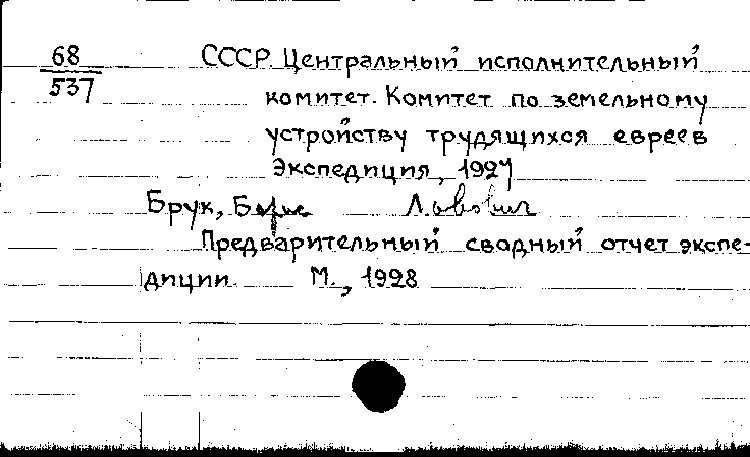 68 СССР. Центральный исполнительный
537
комитет. Комитет по земельному
устройству трудящихся евреев
Экспедиция, 1927
Брук, Борис Львович
Предварительный сводный отчет экспе-
диции М., 1928